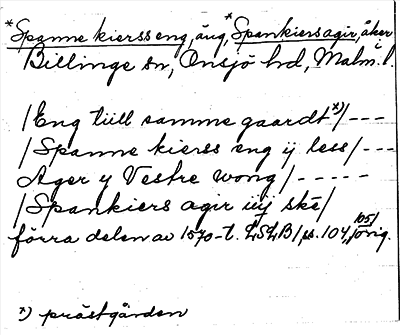 *Spanne kierss eng, äng, *Spankiers agir, åker
Billinge sn, Onsjö hd, Malm. l.
/Eng till samme gaardt*)/ - - -
/Spanne kierss eng ij less/ - - -
Ager y Vestre wong/ - - - - -
/Spankiers agir iiij ske/
förra delen av 1570-t. LSLB/, s. 104, /105/ övrig.
*) prästgården